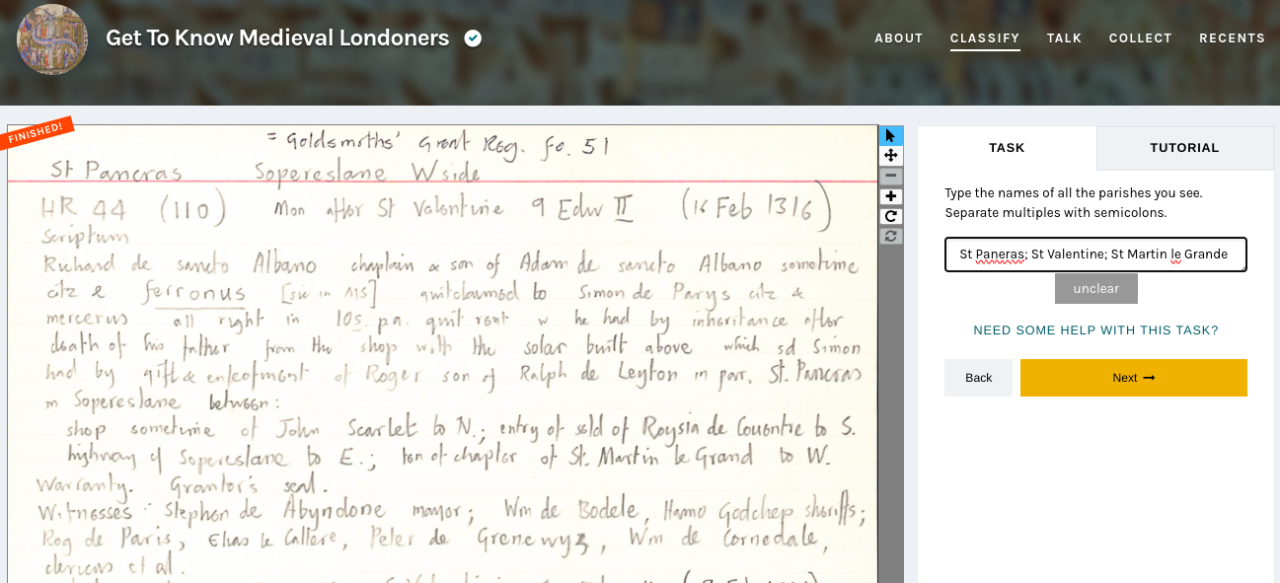 Get To Know Medieval Londoners
ABOUT
CLASSIFY
TALK
COLLECT
RECENTS
FINISHED!
= Goldsmiths' Grant Reg. fo. 51
St Pancras Sopereslane W side
HR 44 (110) Mon after St Valentine 9 Edw II (16 Feb 1316)
Scriptum
Richard de sancto Albano chaplain & son of Adam de sancto Albano sometime
citz & ferronus [sic in MS] quitclaimed to Simon de Parys citz &
mercerus all right in 10s. p.a. quit rent w he had by inheritance after
death of his father from the shop with the solar built above which sd Simon
had by gift & enfeofment of Roger son of Ralph de Leyton in par. St. Pancras
in Sopereslane between:
shop sometime of John Scarlet to N.; entry of seld of Roysia de Couentre to S.
highway of Sopereslane to E.; ten of chapter of St. Martin le Grand to W.
Warranty. Grantor's seal.
Witnesses: Stephen de Abyndone mayor; Wm de Bodele, Hamo Godchep sheriffs;
Rog de Paris, Elias le Callere, Peter de Grenewyz, Wm de Cornedale,
clericus et al.
TASK
TUTORIAL
Type the names of all the parishes you see.
Separate multiples with semicolons.
St Paneras; St Valentine; St Martin le Grande
unclear
NEED SOME HELP WITH THIS TASK?
Back
Next →